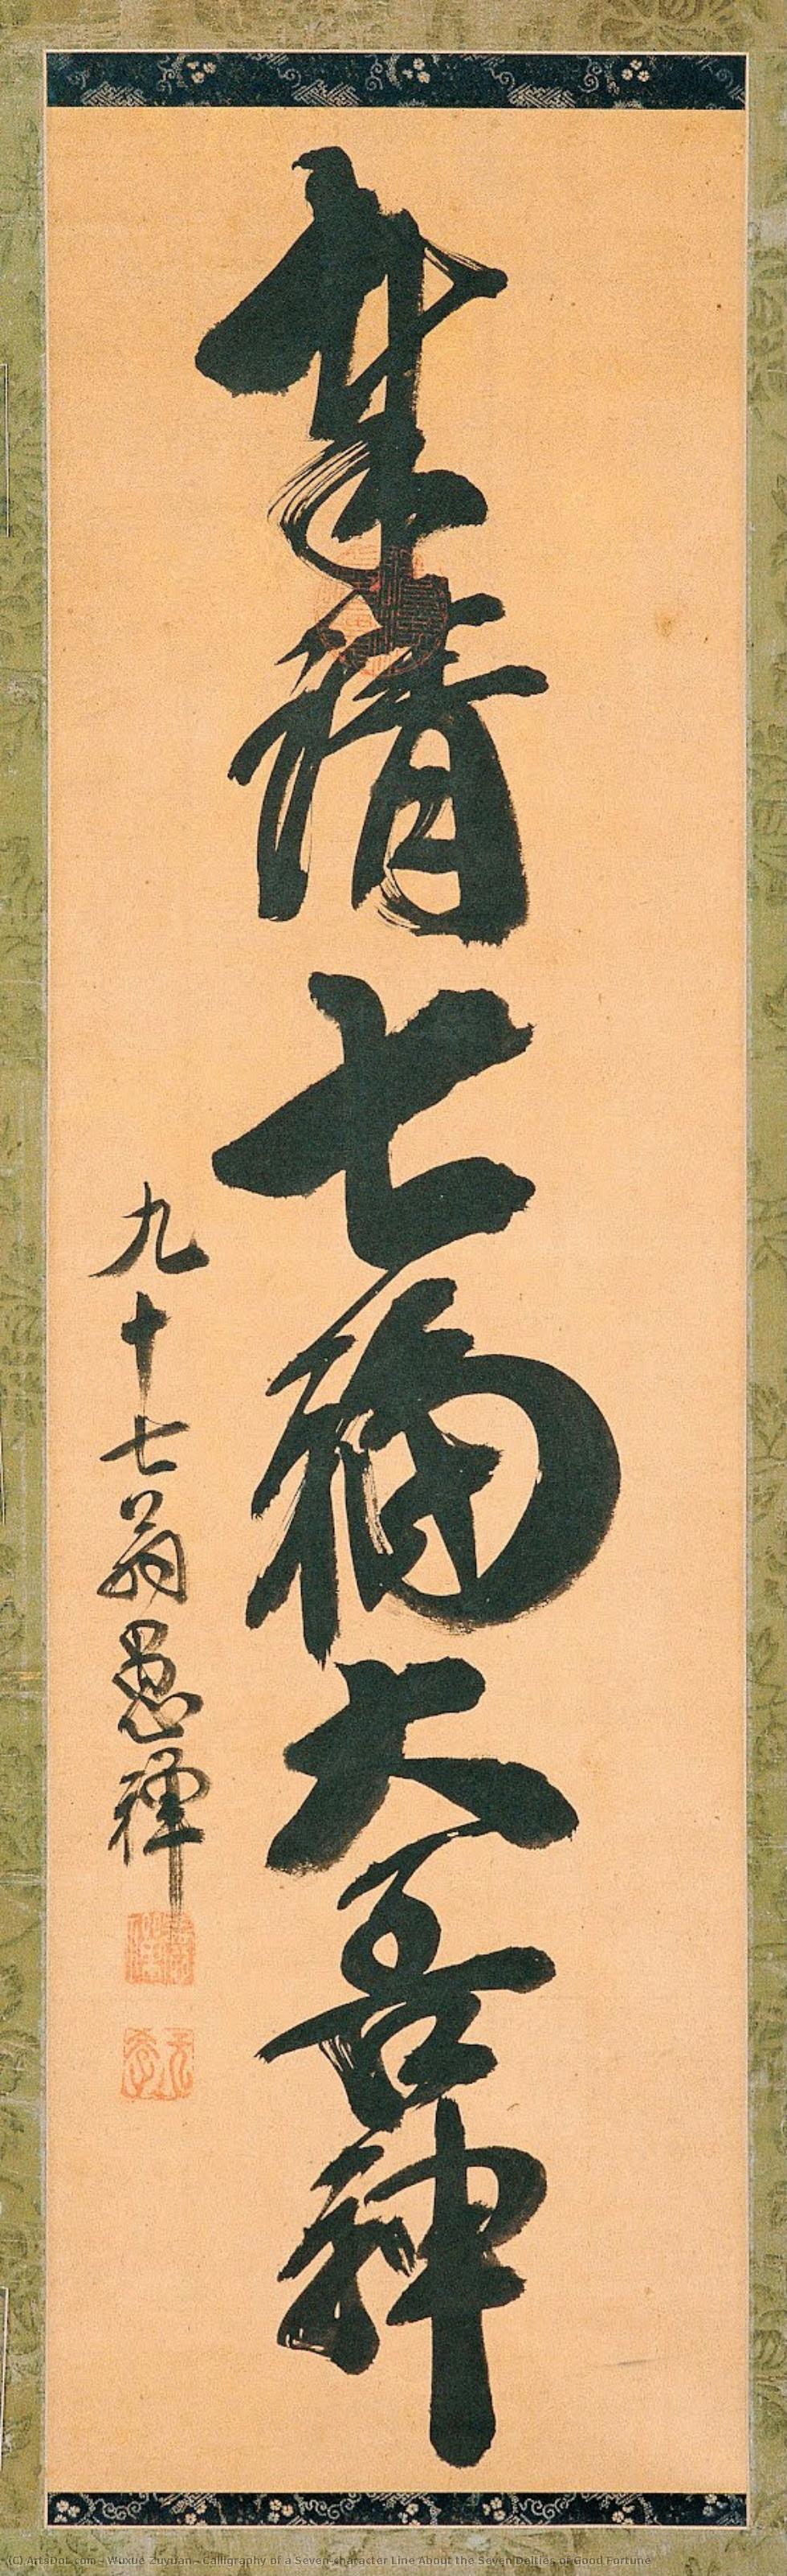 奉請七福大善神
九十七翁愚禅
(C) ArtsDot.com - Wuxue Zuyuan - Calligraphy of a Seven-character Line About the Seven Deities of Good Fortune